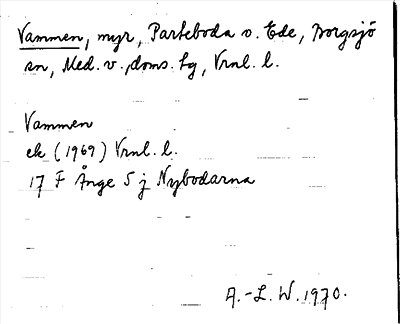 Vammen, myr, Parteboda o. Ede, Borgsjö
sn, Med. v. doms. tg, Vrnl. l.
Vammen
ek (1969) Vrnl. l.
17 F Ånge S j Nybodarna
A.-L. W. 1970.